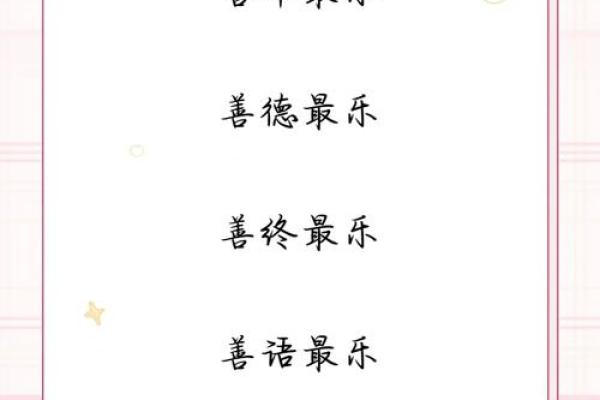 善德最乐
善终最乐
善语最乐